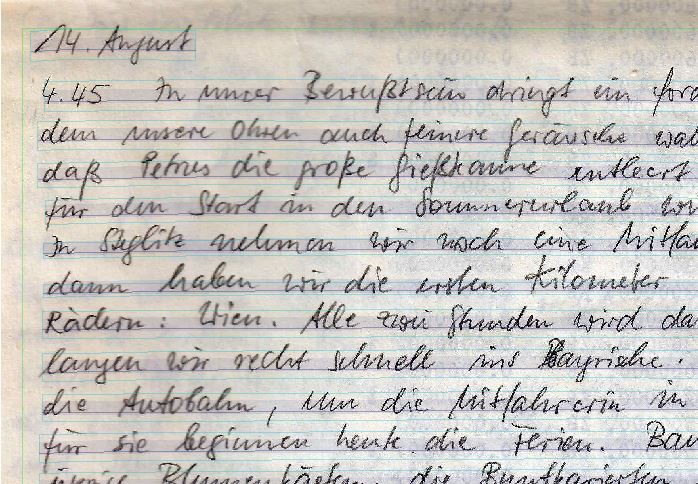 14. August
4.45 In unser Bewußtsein dringt ein
dem unsere Ohren auch feinere Geräusche
daß Petrus die große Gießkanne entleert
für den Start in den Sommerurlaub
In Steglitz nehmen wir noch eine Mitfah
dann haben wir die ersten Kilometer
Rädern: Wien. Alle zwei Stunden wird da
langen wir recht schnell ins Bayrische.
die Autobahn, um die Mitfahrerin in
für sie beginnen heute die Ferien.
Blumenkästen, die Buntkarierten